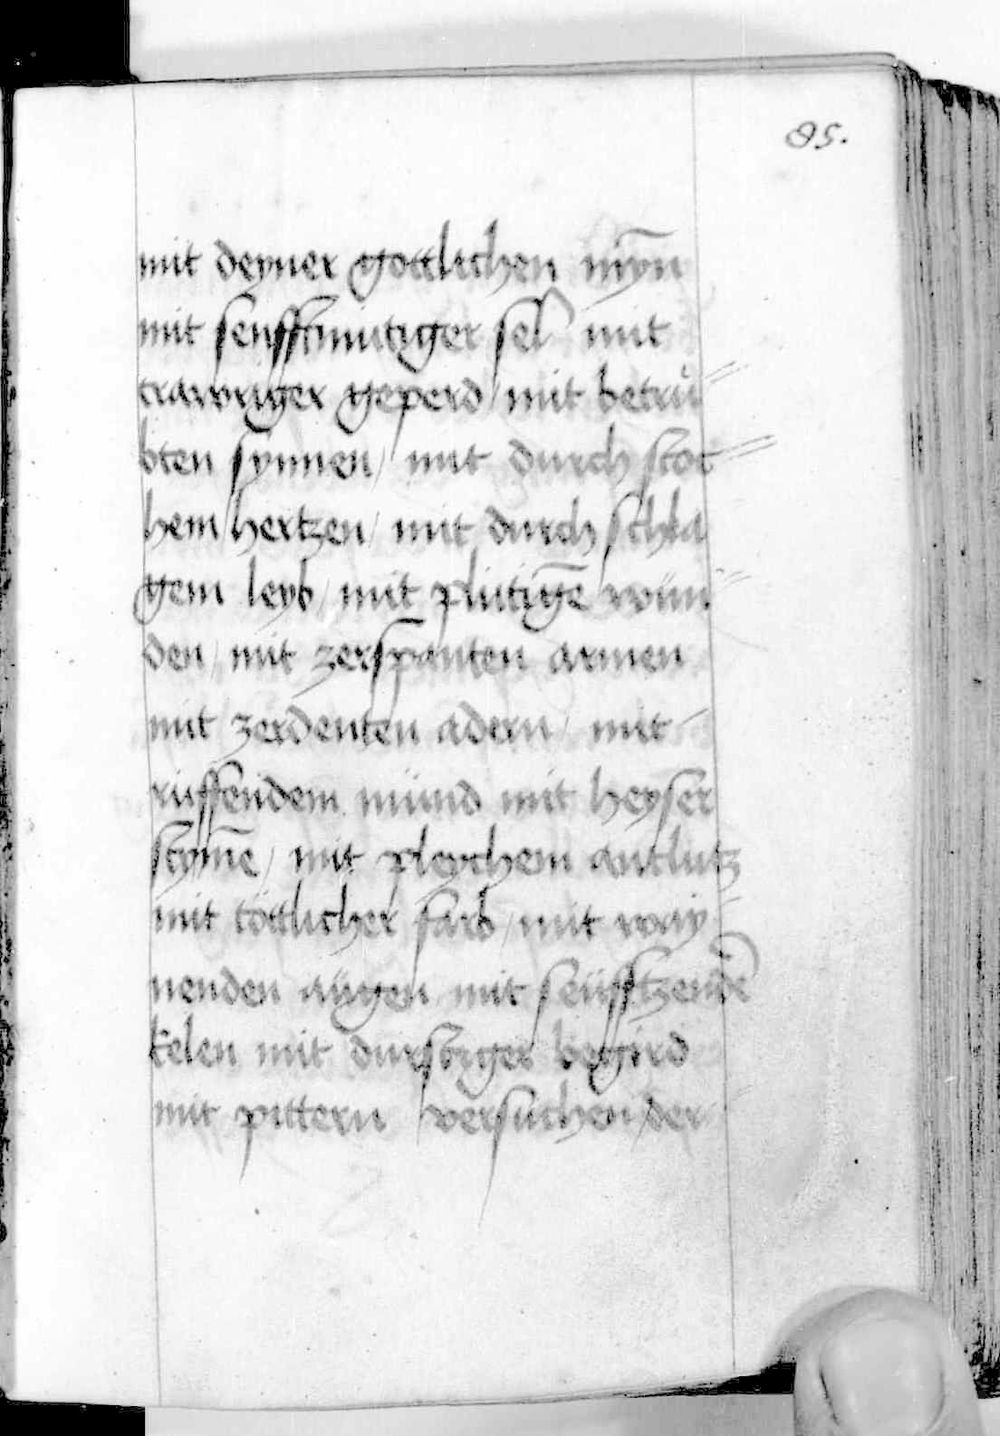 85.
mit deyner gottlichen mȳn
mit senfftmutiger sel mit
trawriger geperd / mit betrů
bten synnen / mit durch stoc
hem hertzen / mit durch schla
gem leyb / mit plutigē wun
den / mit zerspanten armen
mit zerdenten adern / mit
ruffendem mund mit heyser
stym̄e / mit pleychem antlutz
mit töttlicher farb / mit way
nenden augen mit seufftzendē
kelen mit durstiger begird
mit pittern versuchen der